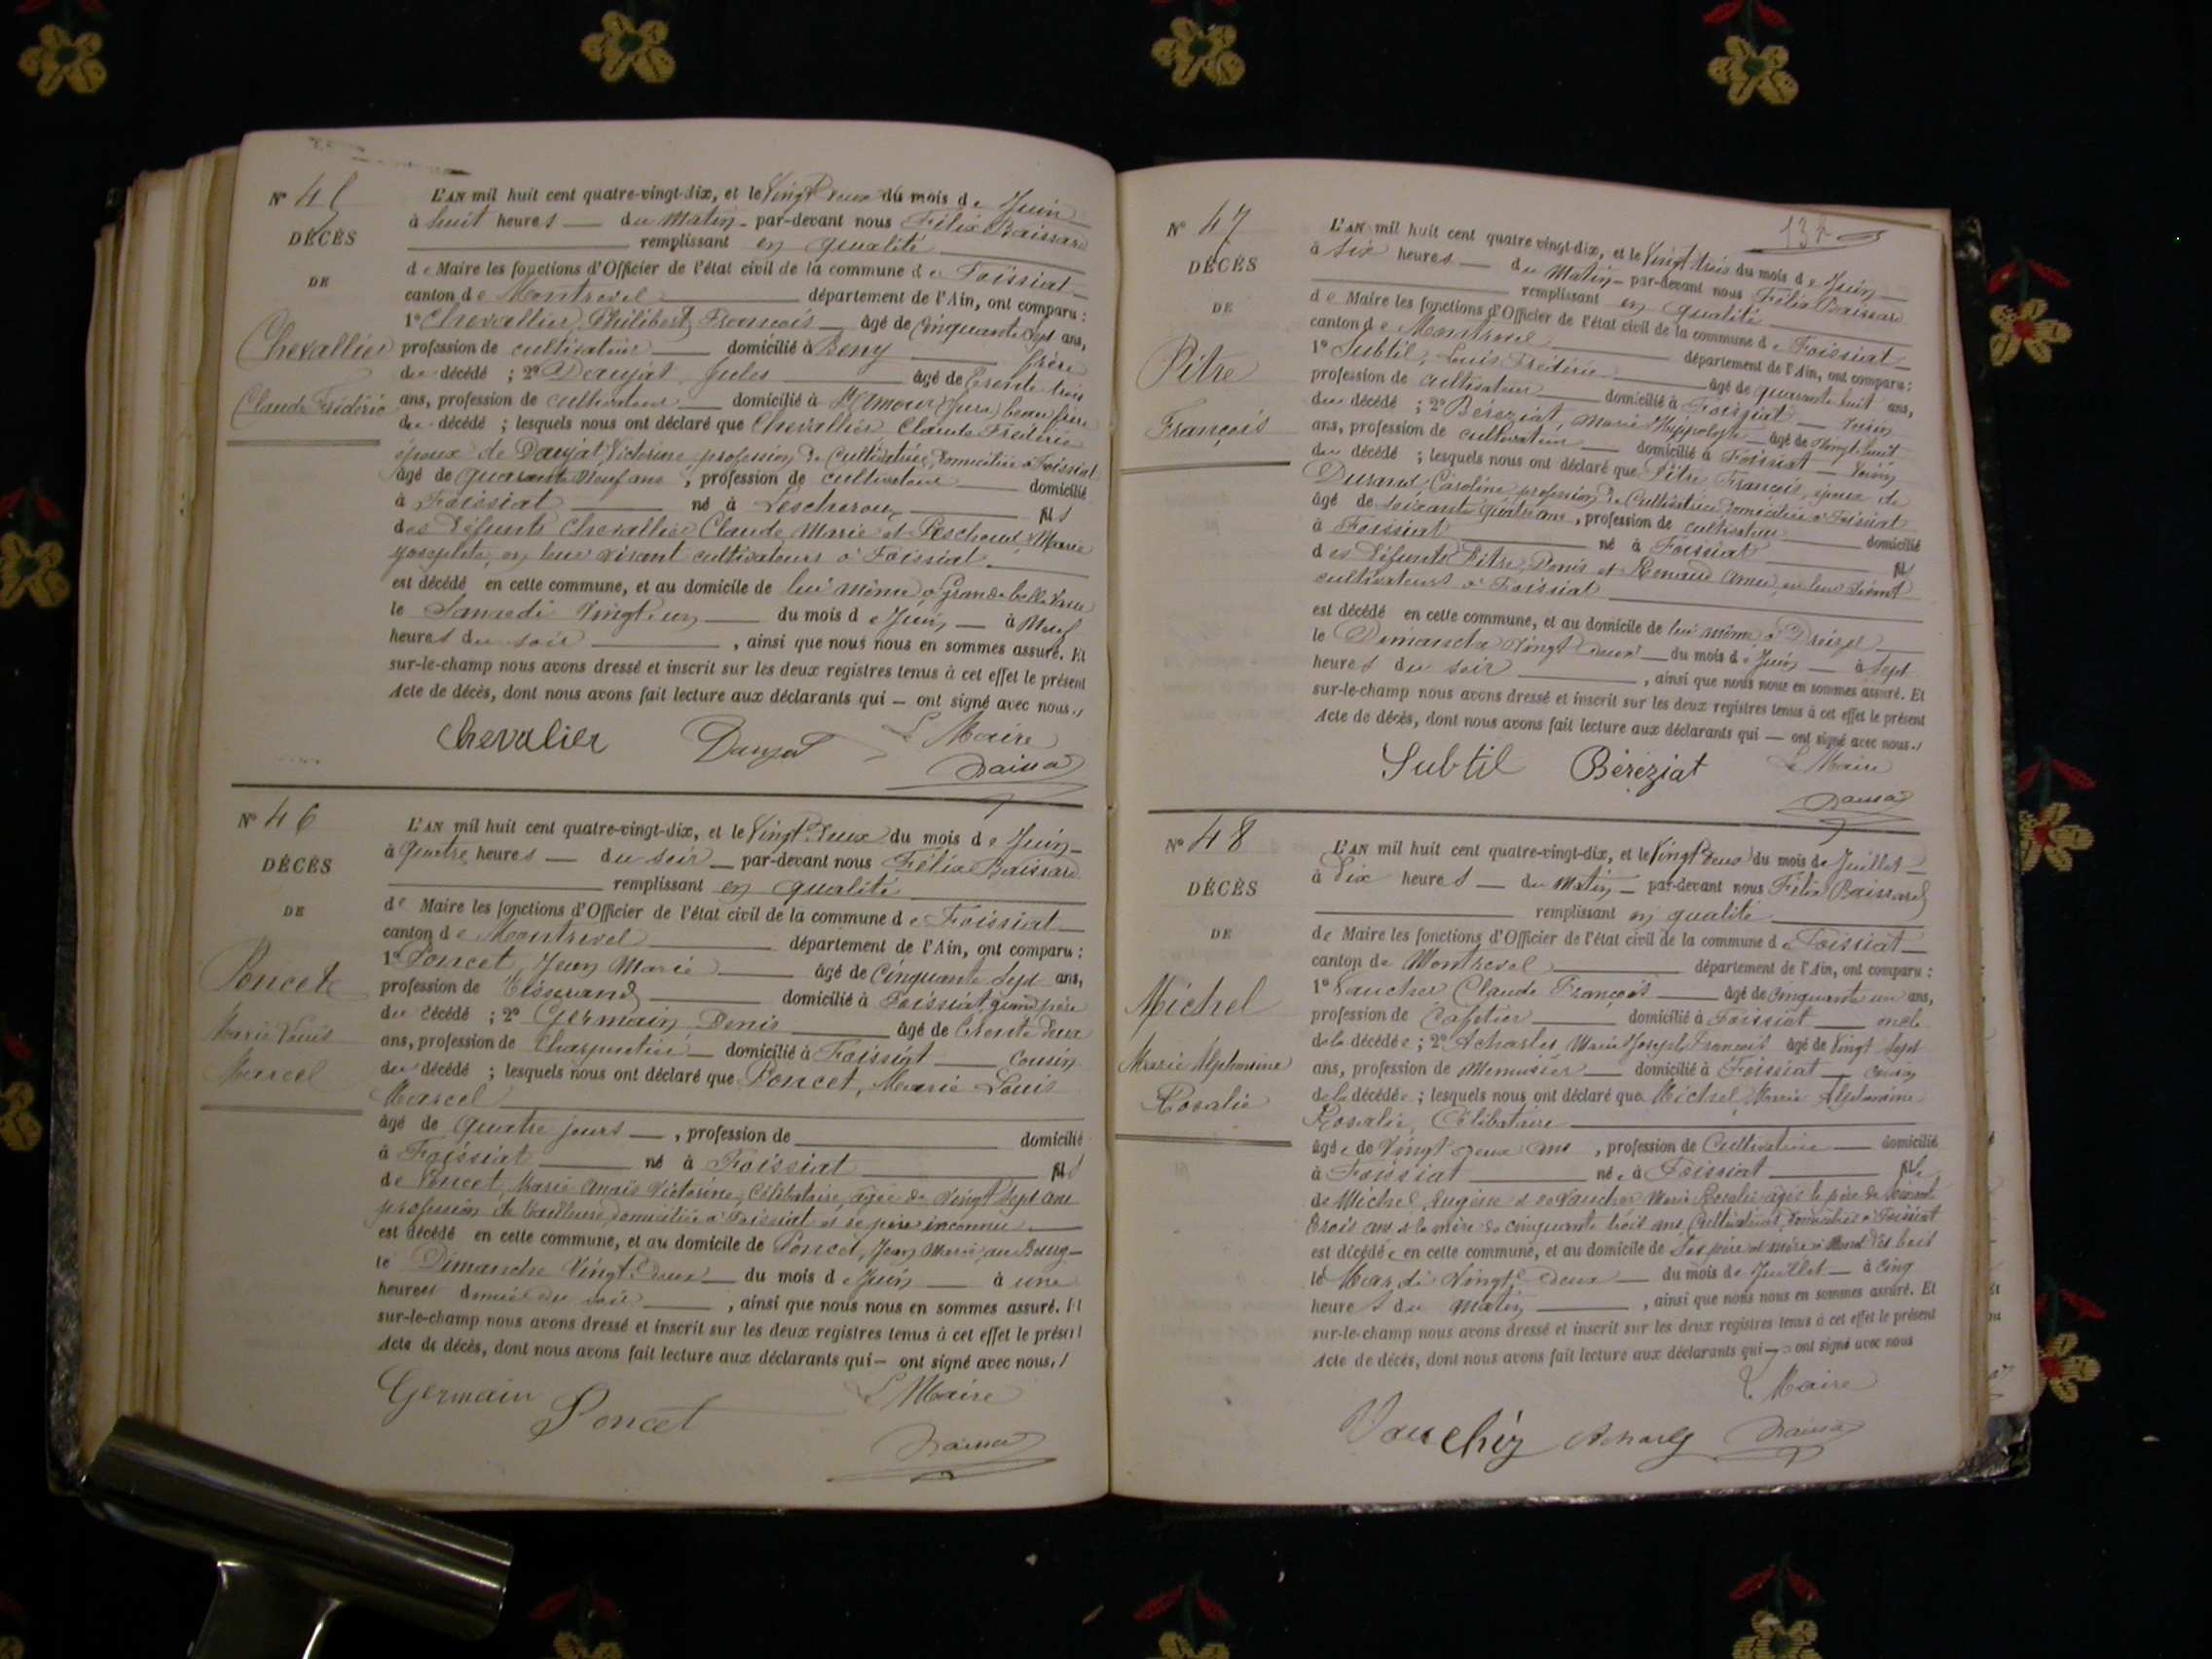 N° 45
DÉCÈS
DE
Chevallier
Claude Frédéric
L'AN mil huit cent quatre-vingt-dix, et le Vingt deux du mois de Juin
à huit heures du Matin par-devant nous Félix Baissard
remplissant en qualité
de Maire les fonctions d'Officier de l'état civil de la commune de Foissiat
canton de Montrevel département de l'Ain, ont comparu :
1° Chevallier, Philibert François âgé de Cinquante sept ans,
profession de cultivateur domicilié à Beny frère
du décédé ; 2° Daujat Jules âgé de trente trois
ans, profession de cultivateur domicilié à St Amour (Jura) beau frère
du décédé ; lesquels nous ont déclaré que Chevallier Claude Frédéric
époux de Daujat Victorine profession de Cultivatrice, domiciliée à Foissiat
âgé de quarante neuf ans, profession de cultivateur domicilié
à Foissiat né à Lescheroux fils
des défunts Chevallier Claude Marie et Marie
Josephte, en leur vivant cultivateurs à Foissiat
est décédé en cette commune, et au domicile de lui même à
le Samedi Vingt un du mois de Juin à Neuf
heures du soir, ainsi que nous nous en sommes assuré. Et
sur-le-champ nous avons dressé et inscrit sur les deux registres tenus à cet effet le présent
Acte de décès, dont nous avons fait lecture aux déclarants qui — ont signé avec nous.
Chevalier Daujat Le Maire
N° 46
DÉCÈS
DE
Poncet
Marie Louis
Marcel
L'AN mil huit cent quatre-vingt-dix, et le Vingt deux du mois de Juin
à quatre heures du soir par-devant nous Félix Baissard
remplissant en qualité
de Maire les fonctions d'Officier de l'état civil de la commune de Foissiat
canton de Montrevel département de l'Ain, ont comparu :
1° Poncet, Jean Marie âgé de Cinquante sept ans,
profession de Tisserand domicilié à Foissiat grand père
du décédé ; 2° Germain Denis âgé de trente deux
ans, profession de Charpentier domicilié à Foissiat cousin
du décédé ; lesquels nous ont déclaré que Poncet, Marie Louis
Marcel
âgé de quatre jours, profession de domicilié
à Foissiat né à Foissiat fils
de Poncet, Marie Anaïs Victorine, Célibataire, âgée de Vingt Sept ans
profession de tailleuse domiciliée à Foissiat et de père inconnu
est décédé en cette commune, et au domicile de Poncet, Jean Marie, au Bourg
le Dimanche Vingt deux du mois de Juin à une
heure demie du soir, ainsi que nous nous en sommes assuré. Et
sur-le-champ nous avons dressé et inscrit sur les deux registres tenus à cet effet le présent
Acte de décès, dont nous avons fait lecture aux déclarants qui — ont signé avec nous.
Germain Poncet Le Maire
N° 47
DÉCÈS
DE
Pitre
François
L'AN mil huit cent quatre-vingt-dix, et le Vingt trois du mois de Juin
à six heures du Matin par-devant nous Félix Baissard
remplissant en qualité
de Maire les fonctions d'Officier de l'état civil de la commune de Foissiat
canton de Montrevel département de l'Ain, ont comparu :
1° Subtil, Louis Frédéric âgé de quarante huit ans,
profession de cultivateur domicilié à Foissiat voisin
du décédé ; 2° Béréziat, Marie Hyppolyte âgé de Vingt huit
ans, profession de cultivateur domicilié à Foissiat voisin
du décédé ; lesquels nous ont déclaré que Pitre François, époux de
Durand Caroline profession de Cultivatrice domiciliée à Foissiat
âgé de soixante quatre ans, profession de cultivateur domicilié
à Foissiat né à Foissiat fils
des défunts Pitre, Denis et Renaud Anne, en leur vivant
cultivateurs à Foissiat
est décédé en cette commune, et au domicile de lui même à
le Dimanche Vingt deux du mois de Juin à Sept
heures du soir, ainsi que nous nous en sommes assuré. Et
sur-le-champ nous avons dressé et inscrit sur les deux registres tenus à cet effet le présent
Acte de décès, dont nous avons fait lecture aux déclarants qui — ont signé avec nous.
Subtil Béréziat Le Maire
N° 48
DÉCÈS
DE
Michel
Marie Alphonsine
Rosalie
L'AN mil huit cent quatre-vingt-dix, et le Vingt deux du mois de Juillet
à dix heures du Matin par-devant nous Félix Baissard
remplissant en qualité
de Maire les fonctions d'Officier de l'état civil de la commune de Foissiat
canton de Montrevel département de l'Ain, ont comparu :
1° Vaucher Claude François âgé de cinquante un ans,
profession de Cafetier domicilié à Foissiat oncle
de la décédée ; 2° Acharles Marie Joseph François âgé de Vingt sept
ans, profession de Menuisier domicilié à Foissiat cousin
de la décédée ; lesquels nous ont déclaré que Michel, Marie Alphonsine
Rosalie, Célibataire
âgée de Vingt deux ans, profession de Cultivatrice domicilié
à Foissiat née à Foissiat fille
de Michel, Eugène et de Vaucher Marie Rosalie âgés le père de soixante
trois ans et la mère de cinquante trois ans Cultivateurs domiciliés à Foissiat
est décédée en cette commune, et au domicile de Ses père et mère à
le Mardi Vingt deux du mois de Juillet à Cinq
heures du Matin, ainsi que nous nous en sommes assuré. Et
sur-le-champ nous avons dressé et inscrit sur les deux registres tenus à cet effet le présent
Acte de décès, dont nous avons fait lecture aux déclarants qui — ont signé avec nous
Le Maire